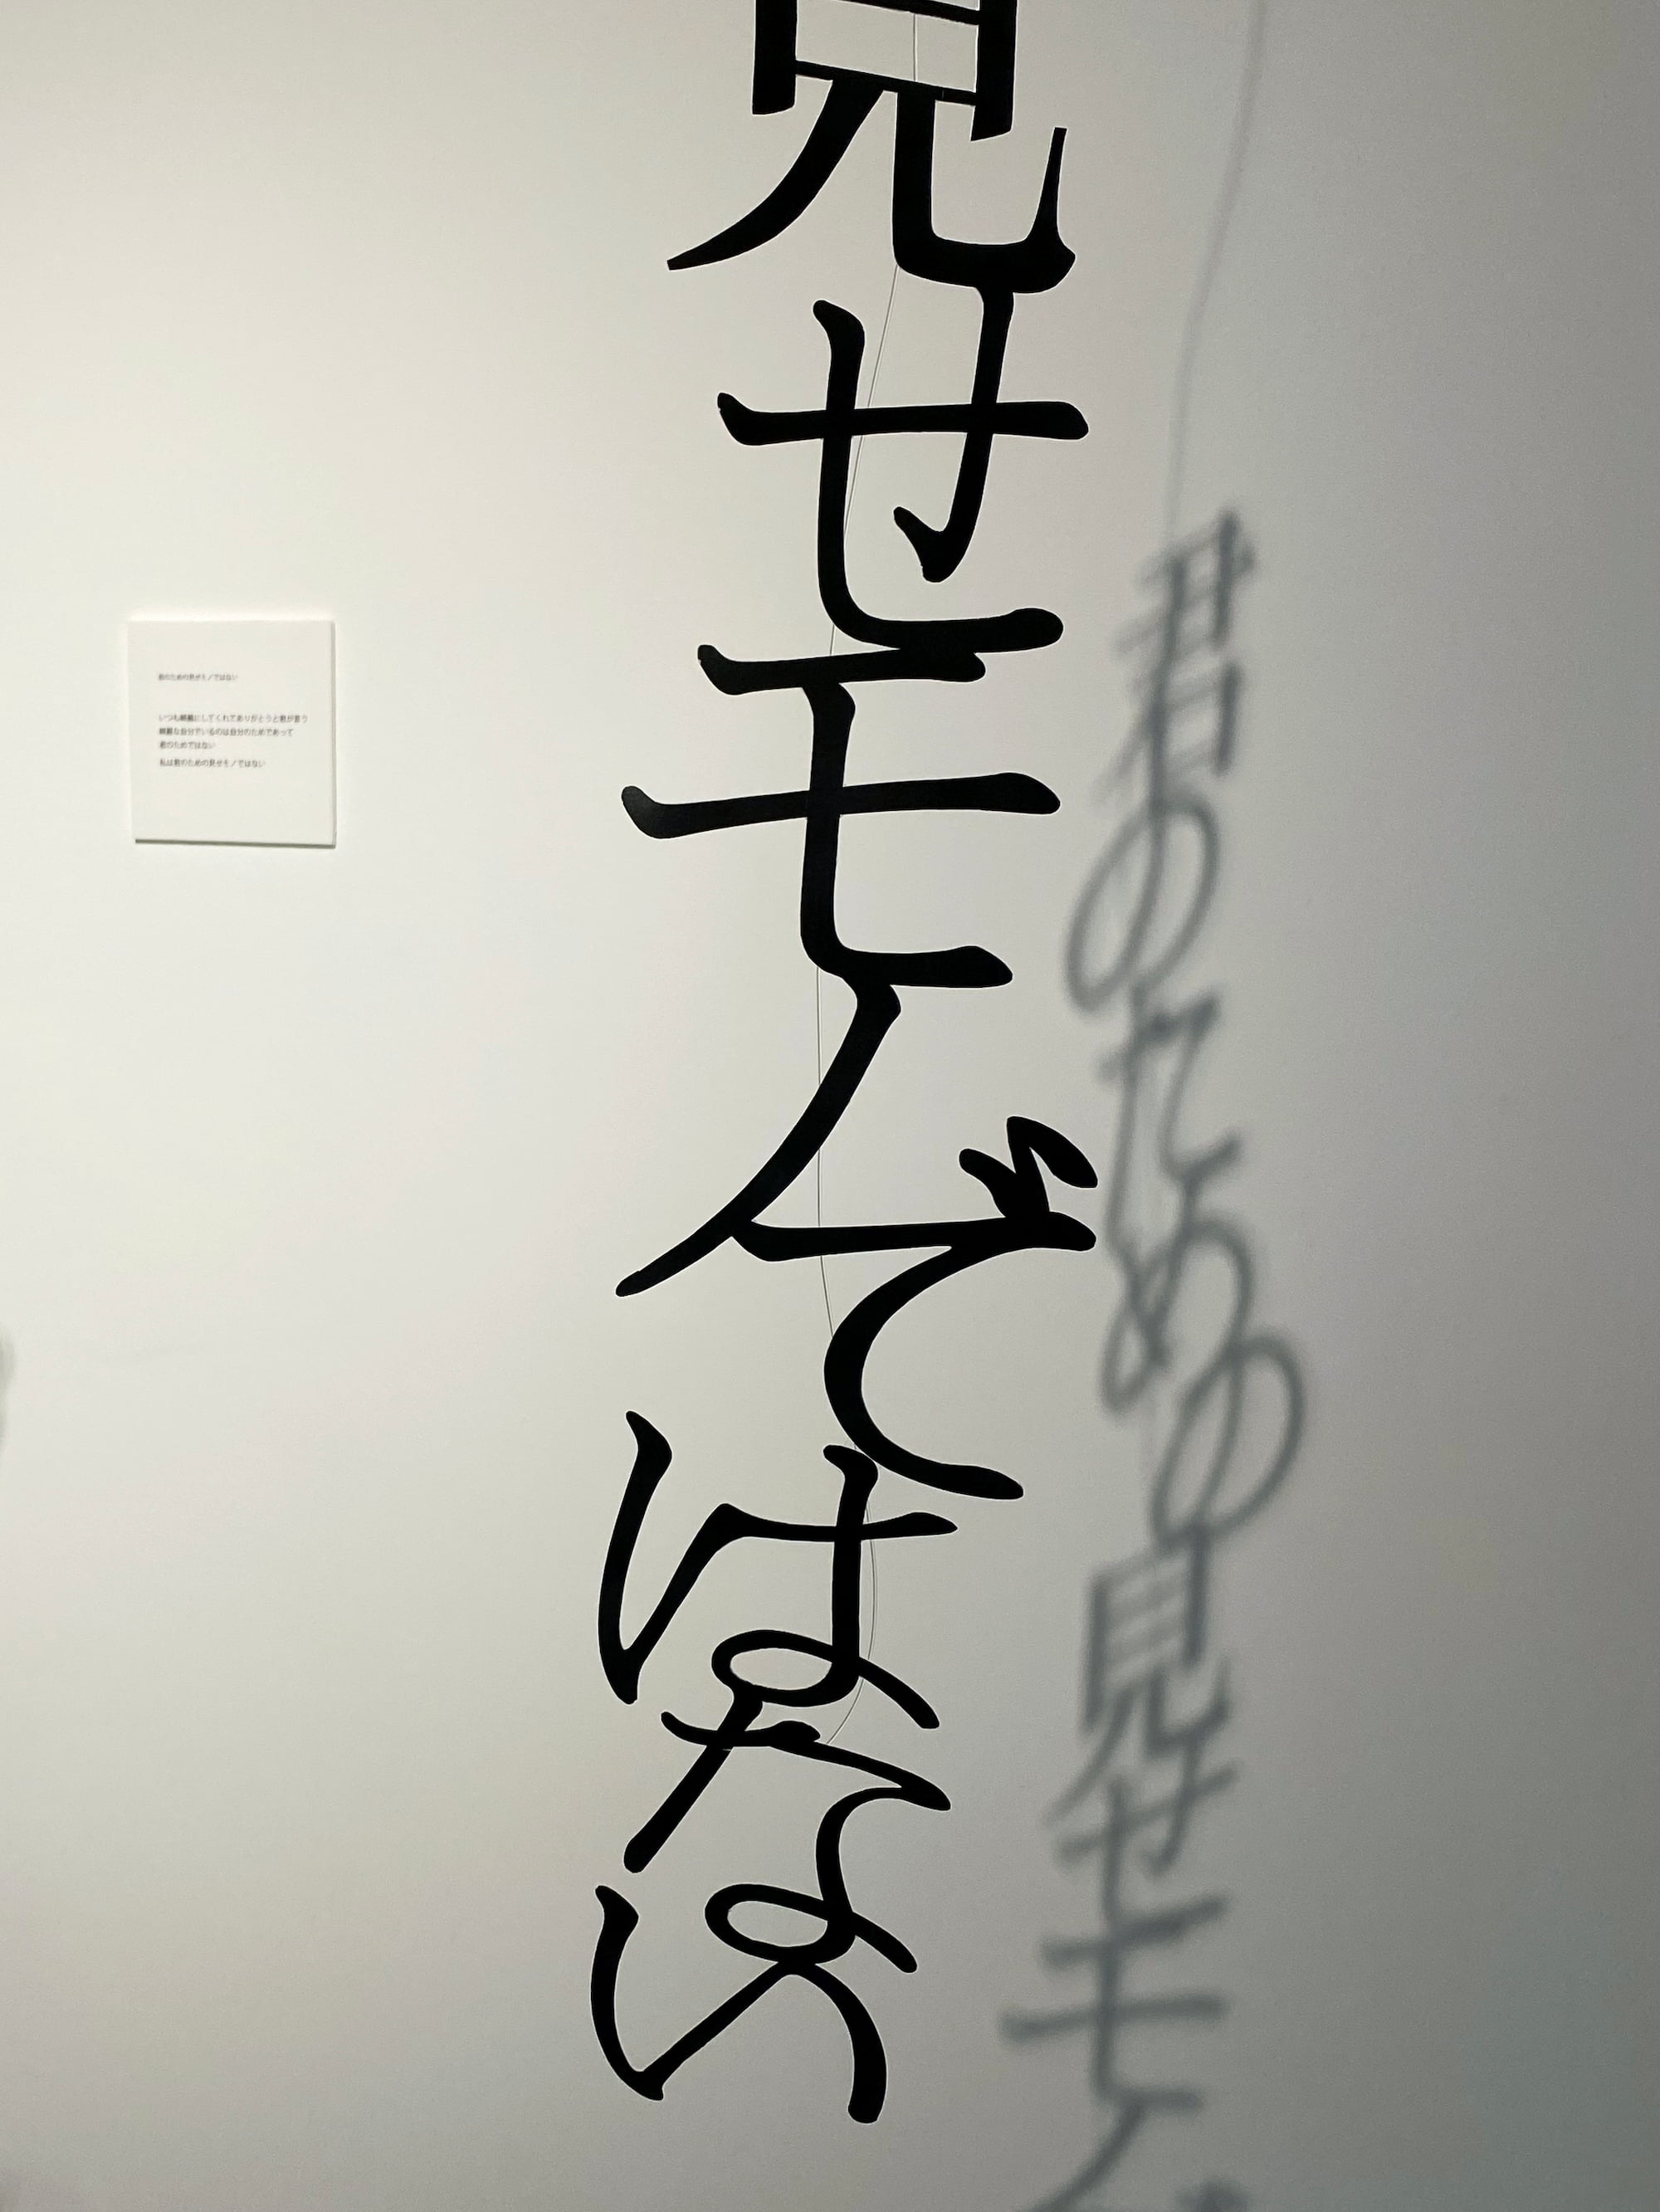 君のための見せモノではない
いつも綺麗にしてくれてありがとうと君が言う
綺麗な自分でいるのは自分のためであって
君のためではない
私は君のための見せモノではない
見せモノではない
君のための見せモノ